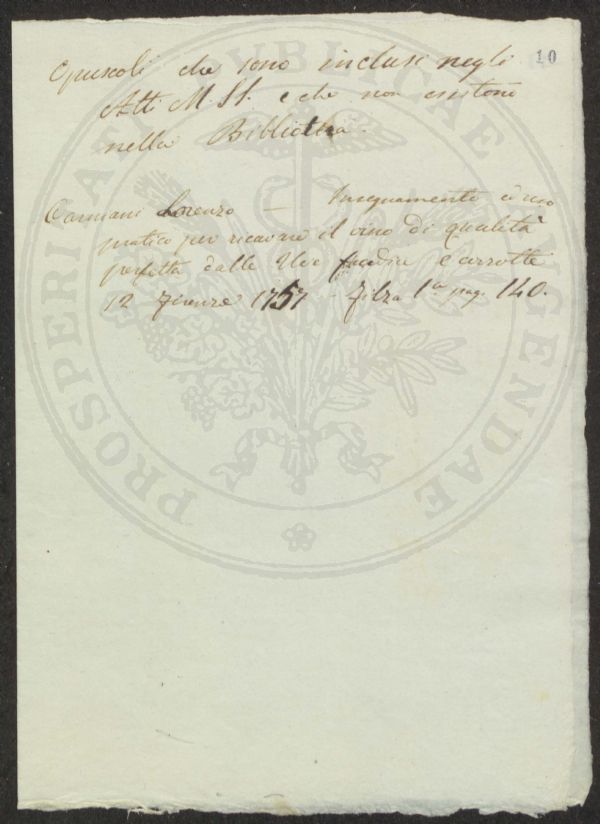 10
Opuscoli che sono inclusi negli
Atti M. SS. e che non esistono
nella Biblioteca.
Lorenzo — Insegnamento
pratico per ricavare il vino di qualità
perfetta dalle Uve
12 Firenze 1757 - Filza 1a pag. 140.
PROSPERITATI PVBLICAE AUGENDAE